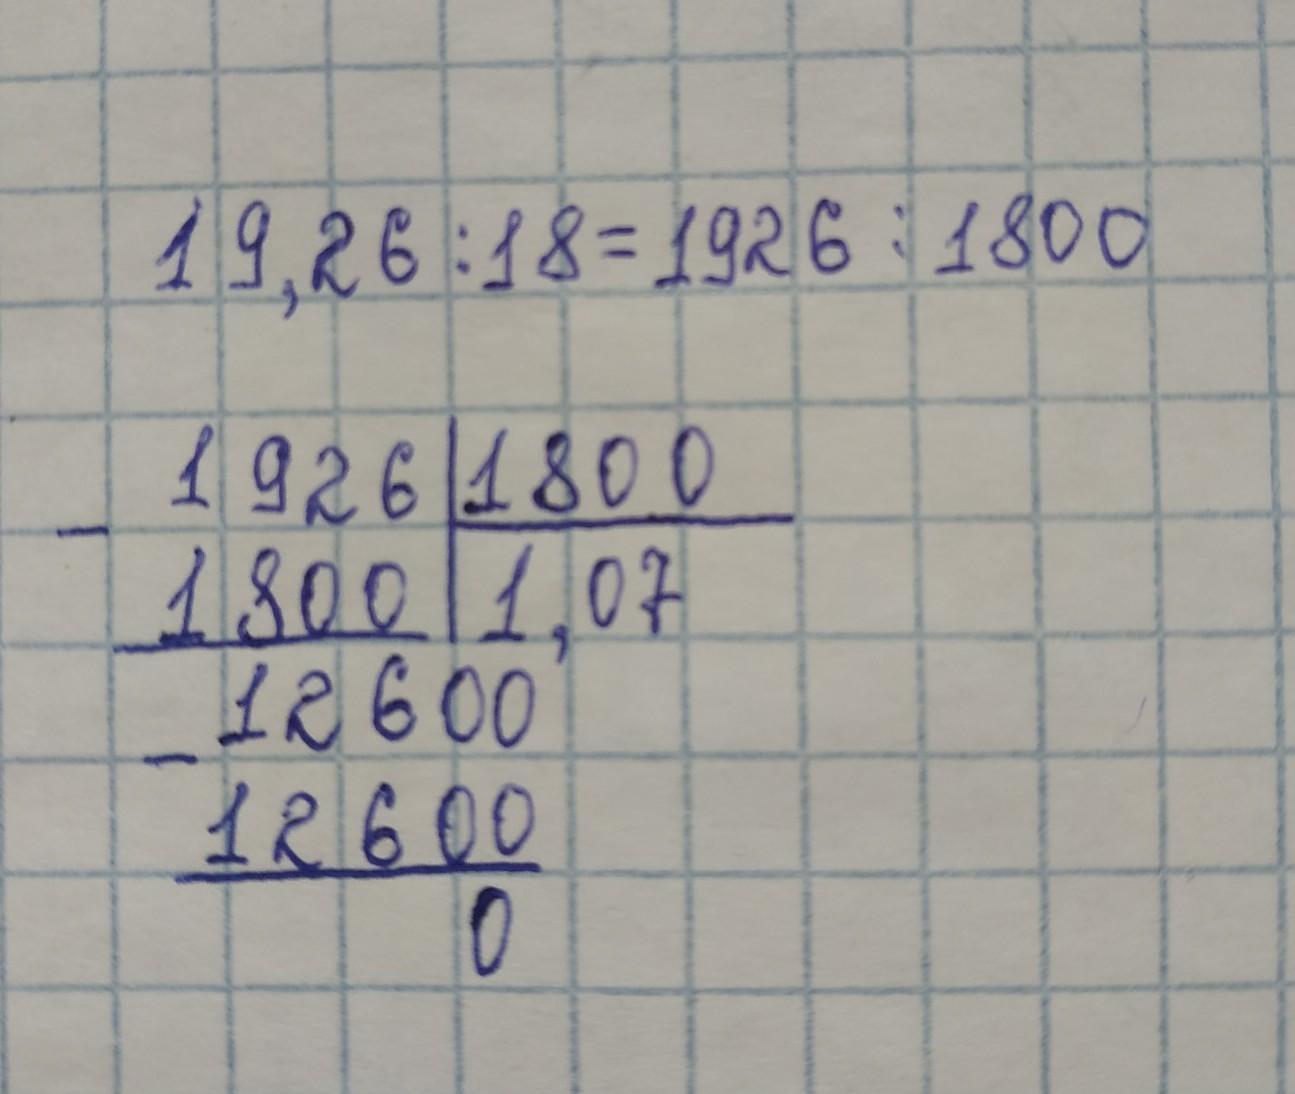 19,26:18=1926:1800
1926|1800
1800|1,07
12600
12600
0